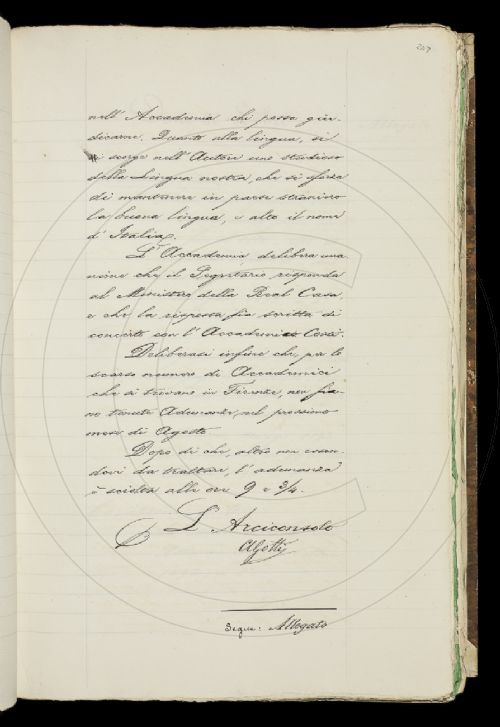 247
nell' Accademia chi possa giu-
dicarne. Quanto alla lingua, si
scorge nell' Autore uno studioso
della Lingua nostra, che si sforza
di mantenere in paese straniero
la buona lingua, e alto il nome
d' Italia.
L' Accademia delibera una-
nime che il Segretario risponda
al Ministro della Real Casa,
e che la risposta sia scritta di
concerto con l' Accademico Conti.
Deliberasi infine che per lo
scarso numero di Accademici
che si trovano in Firenze, non sia-
no tenute Adunanze, nel prossimo
mese di Agosto.
Dopo di che, altro non essen-
dovi da trattare, l' adunanza
è sciolta alle ore 9 e 3/4.
L' Arciconsolo
Segue: Allegato